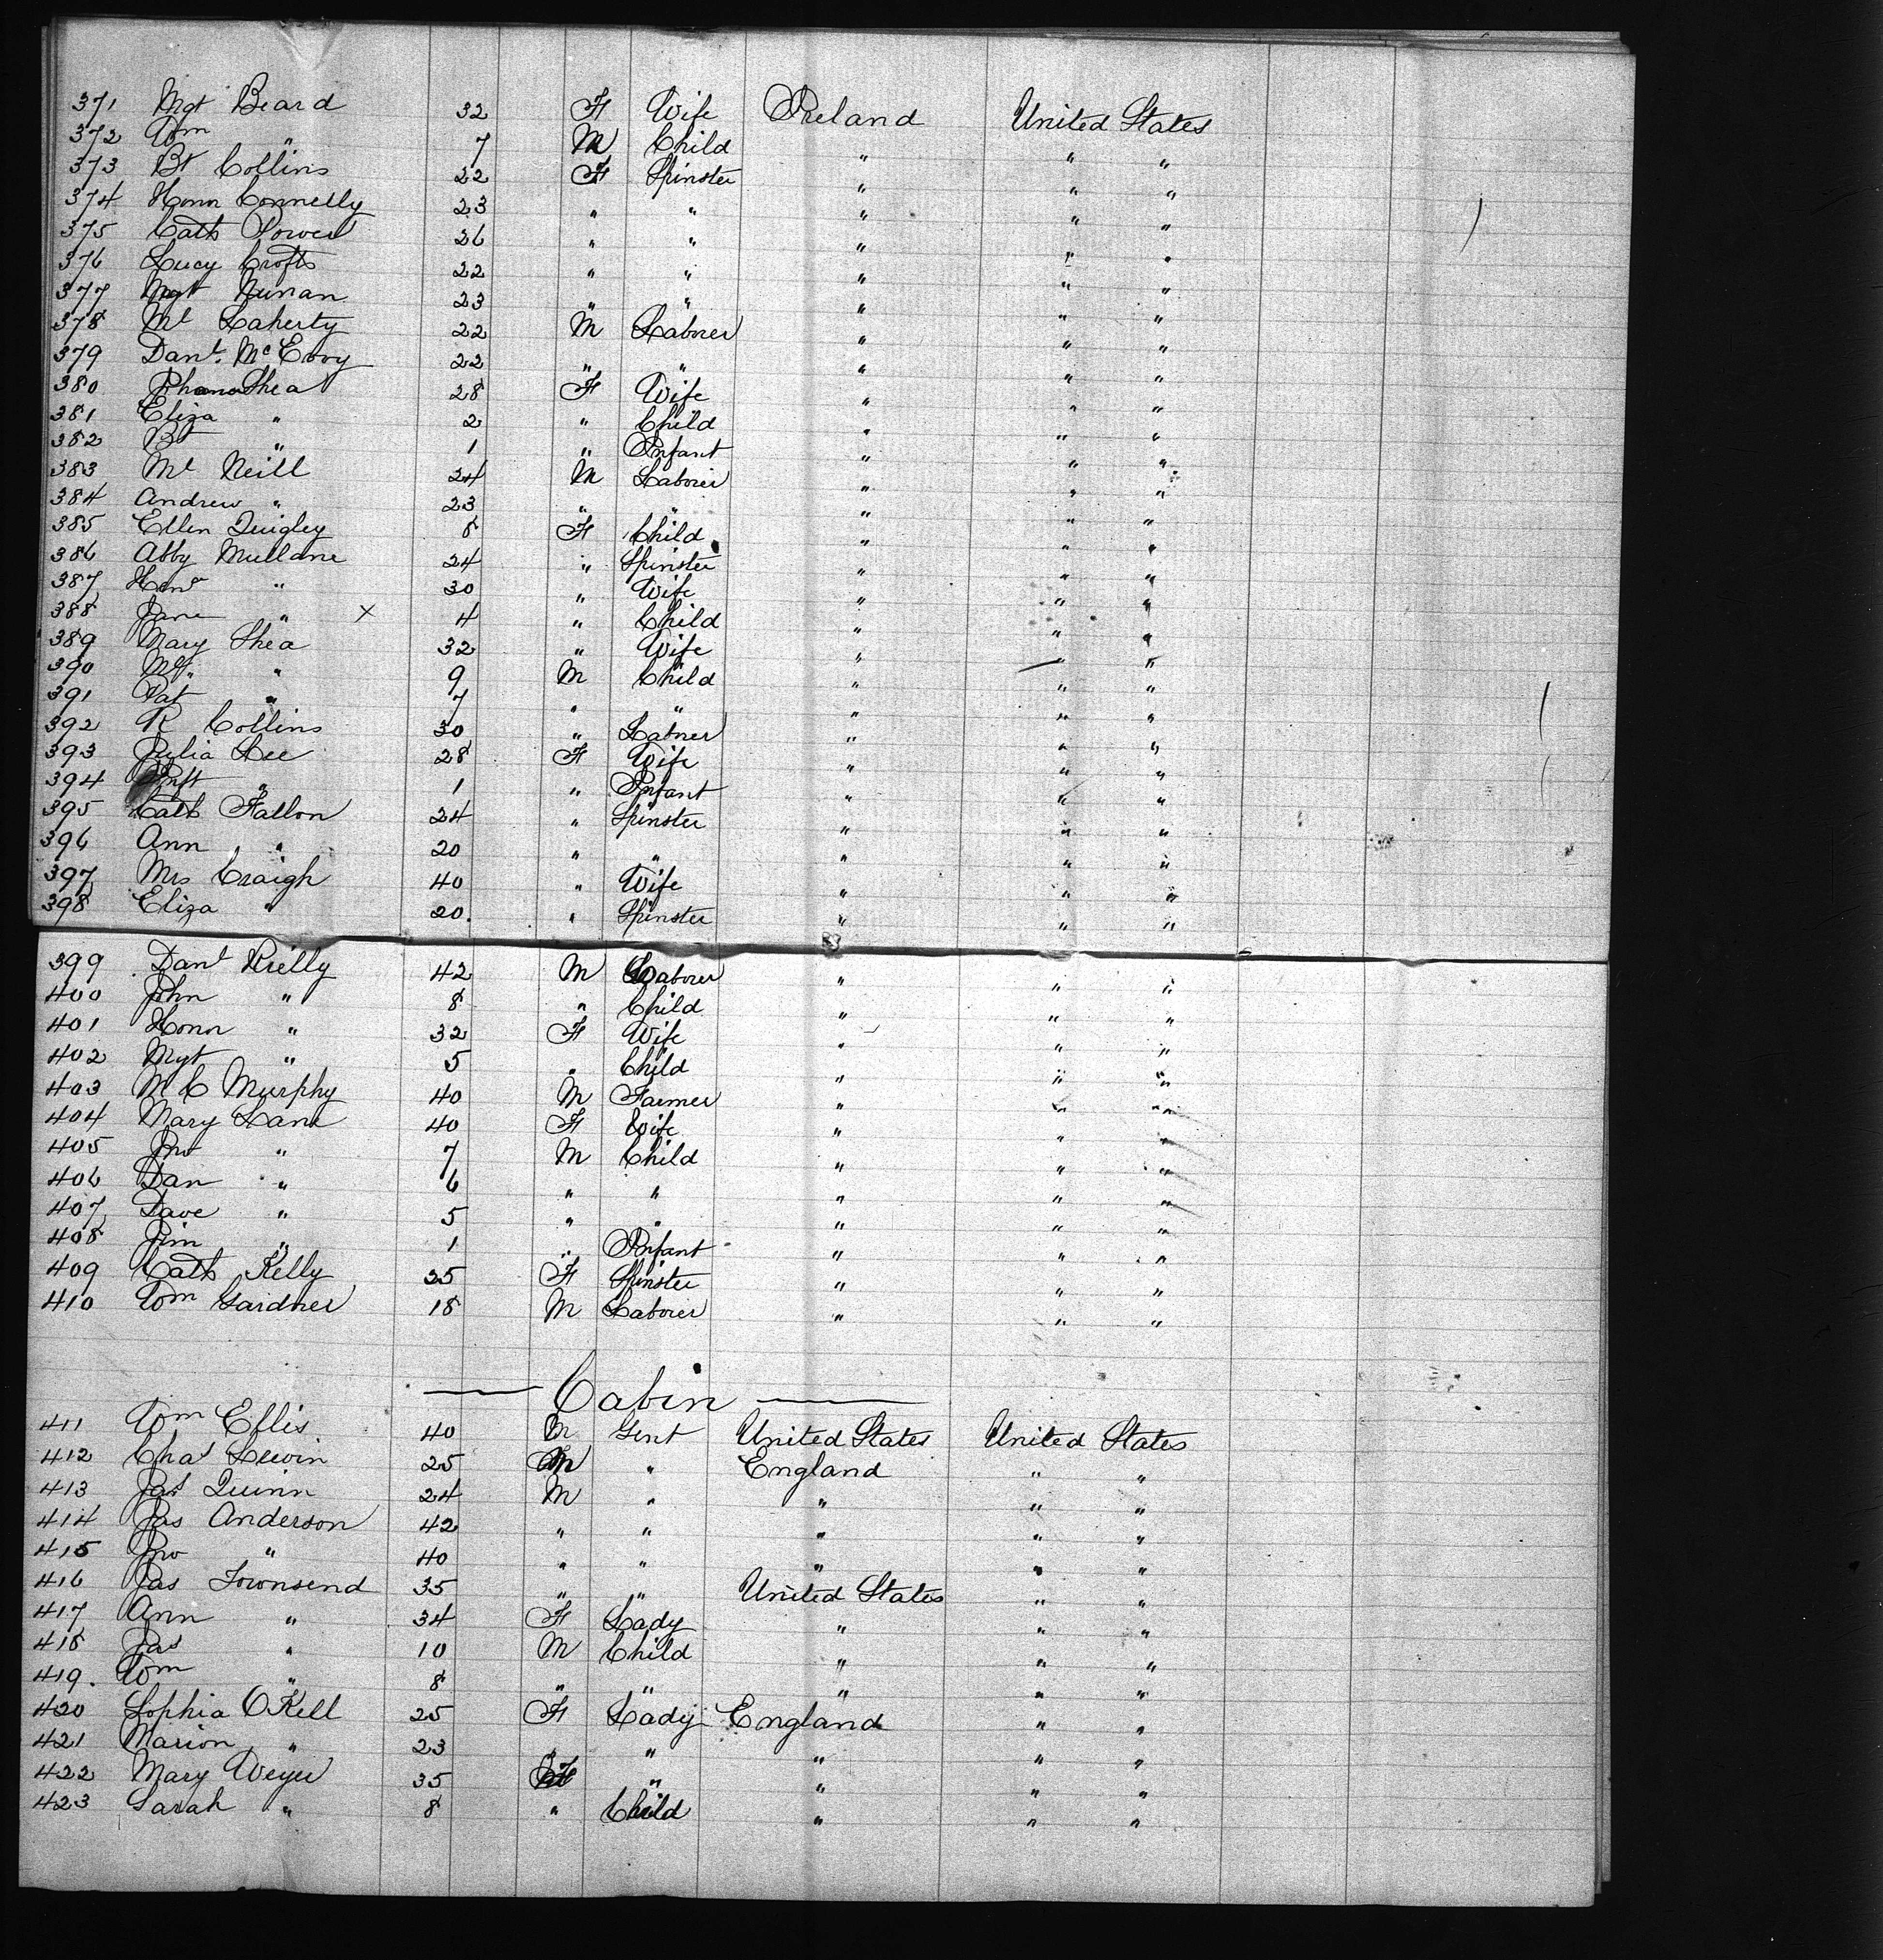 371 Mgt Beard 32 F Wife Ireland United States
372 Wm " 7 M Child " " "
373 Bt Collins 22 F Spinster " " "
374 Honn Connelly 23 " " " " "
375 Cath Power 26 " " " " "
376 Lucy Crofts 22 " " " " "
377 Mgt Nunan 23 " " " " "
378 Ml Laherty 22 M Laborer " " "
379 Danl. McEvoy 22 " " " " "
380 Johana Shea 28 F Wife " " "
381 Eliza " 2 " Child " " "
382 Bt " 1 " Infant " " "
383 Ml Neill 24 M Laborer " " "
384 Andrew " 23 " " " " "
385 Ellen Quigley 8 F Child " " "
386 Abby Mullane 24 " Spinster " " "
387 Hona " 30 " Wife " " "
388 Jane " x 4 " Child " " "
389 Mary Shea 32 " Wife " " "
390 " 9 M Child " " "
391 Pat " 7 " " " " "
392 R Collins 30 " Laborer " " "
393 Julia Lee 28 F Wife " " "
394 Inft " 1 " Infant " " "
395 Cath Fallon 24 " Spinster " " "
396 Ann " 20 " " " " "
397 Mrs Craigh 40 " Wife " " "
398 Eliza " 20. " Spinster " " "
399 Danl Rielly 42 M Laborer " " "
400 John " 8 " Child " " "
401 Honn " 32 F Wife " " "
402 Mgt " 5 " Child " " "
403 M C Murphy 40 M Farmer " " "
404 Mary Lane 40 F Wife " " "
405 Jno " 7 M Child " " "
406 Dan " 6 " " " " "
407 Dave " 5 " " " " "
408 Jim " 1 " Infant " " "
409 Cath Kelly 25 F Spinster " " "
410 Wm Gardner 18 M Laborer " " "
Cabin
411 Wm Ellis 40 M Gent United States United States
412 Chas Lewin 25 M " England " "
413 Jas Quinn 24 M " " " "
414 Jas Anderson 42 " " " " "
415 Jno " 40 " " " " "
416 Jas Townsend 35 " " United States " "
417 Ann " 34 F Lady " " "
418 Jas " 10 M Child " " "
419. Wm " 8 " " " " "
420 Sophia OKell 25 F Lady England " "
421 Marion " 23 " " " " "
422 Mary Weyer 35 F " " " "
423 Sarah " 8 " Child " " "